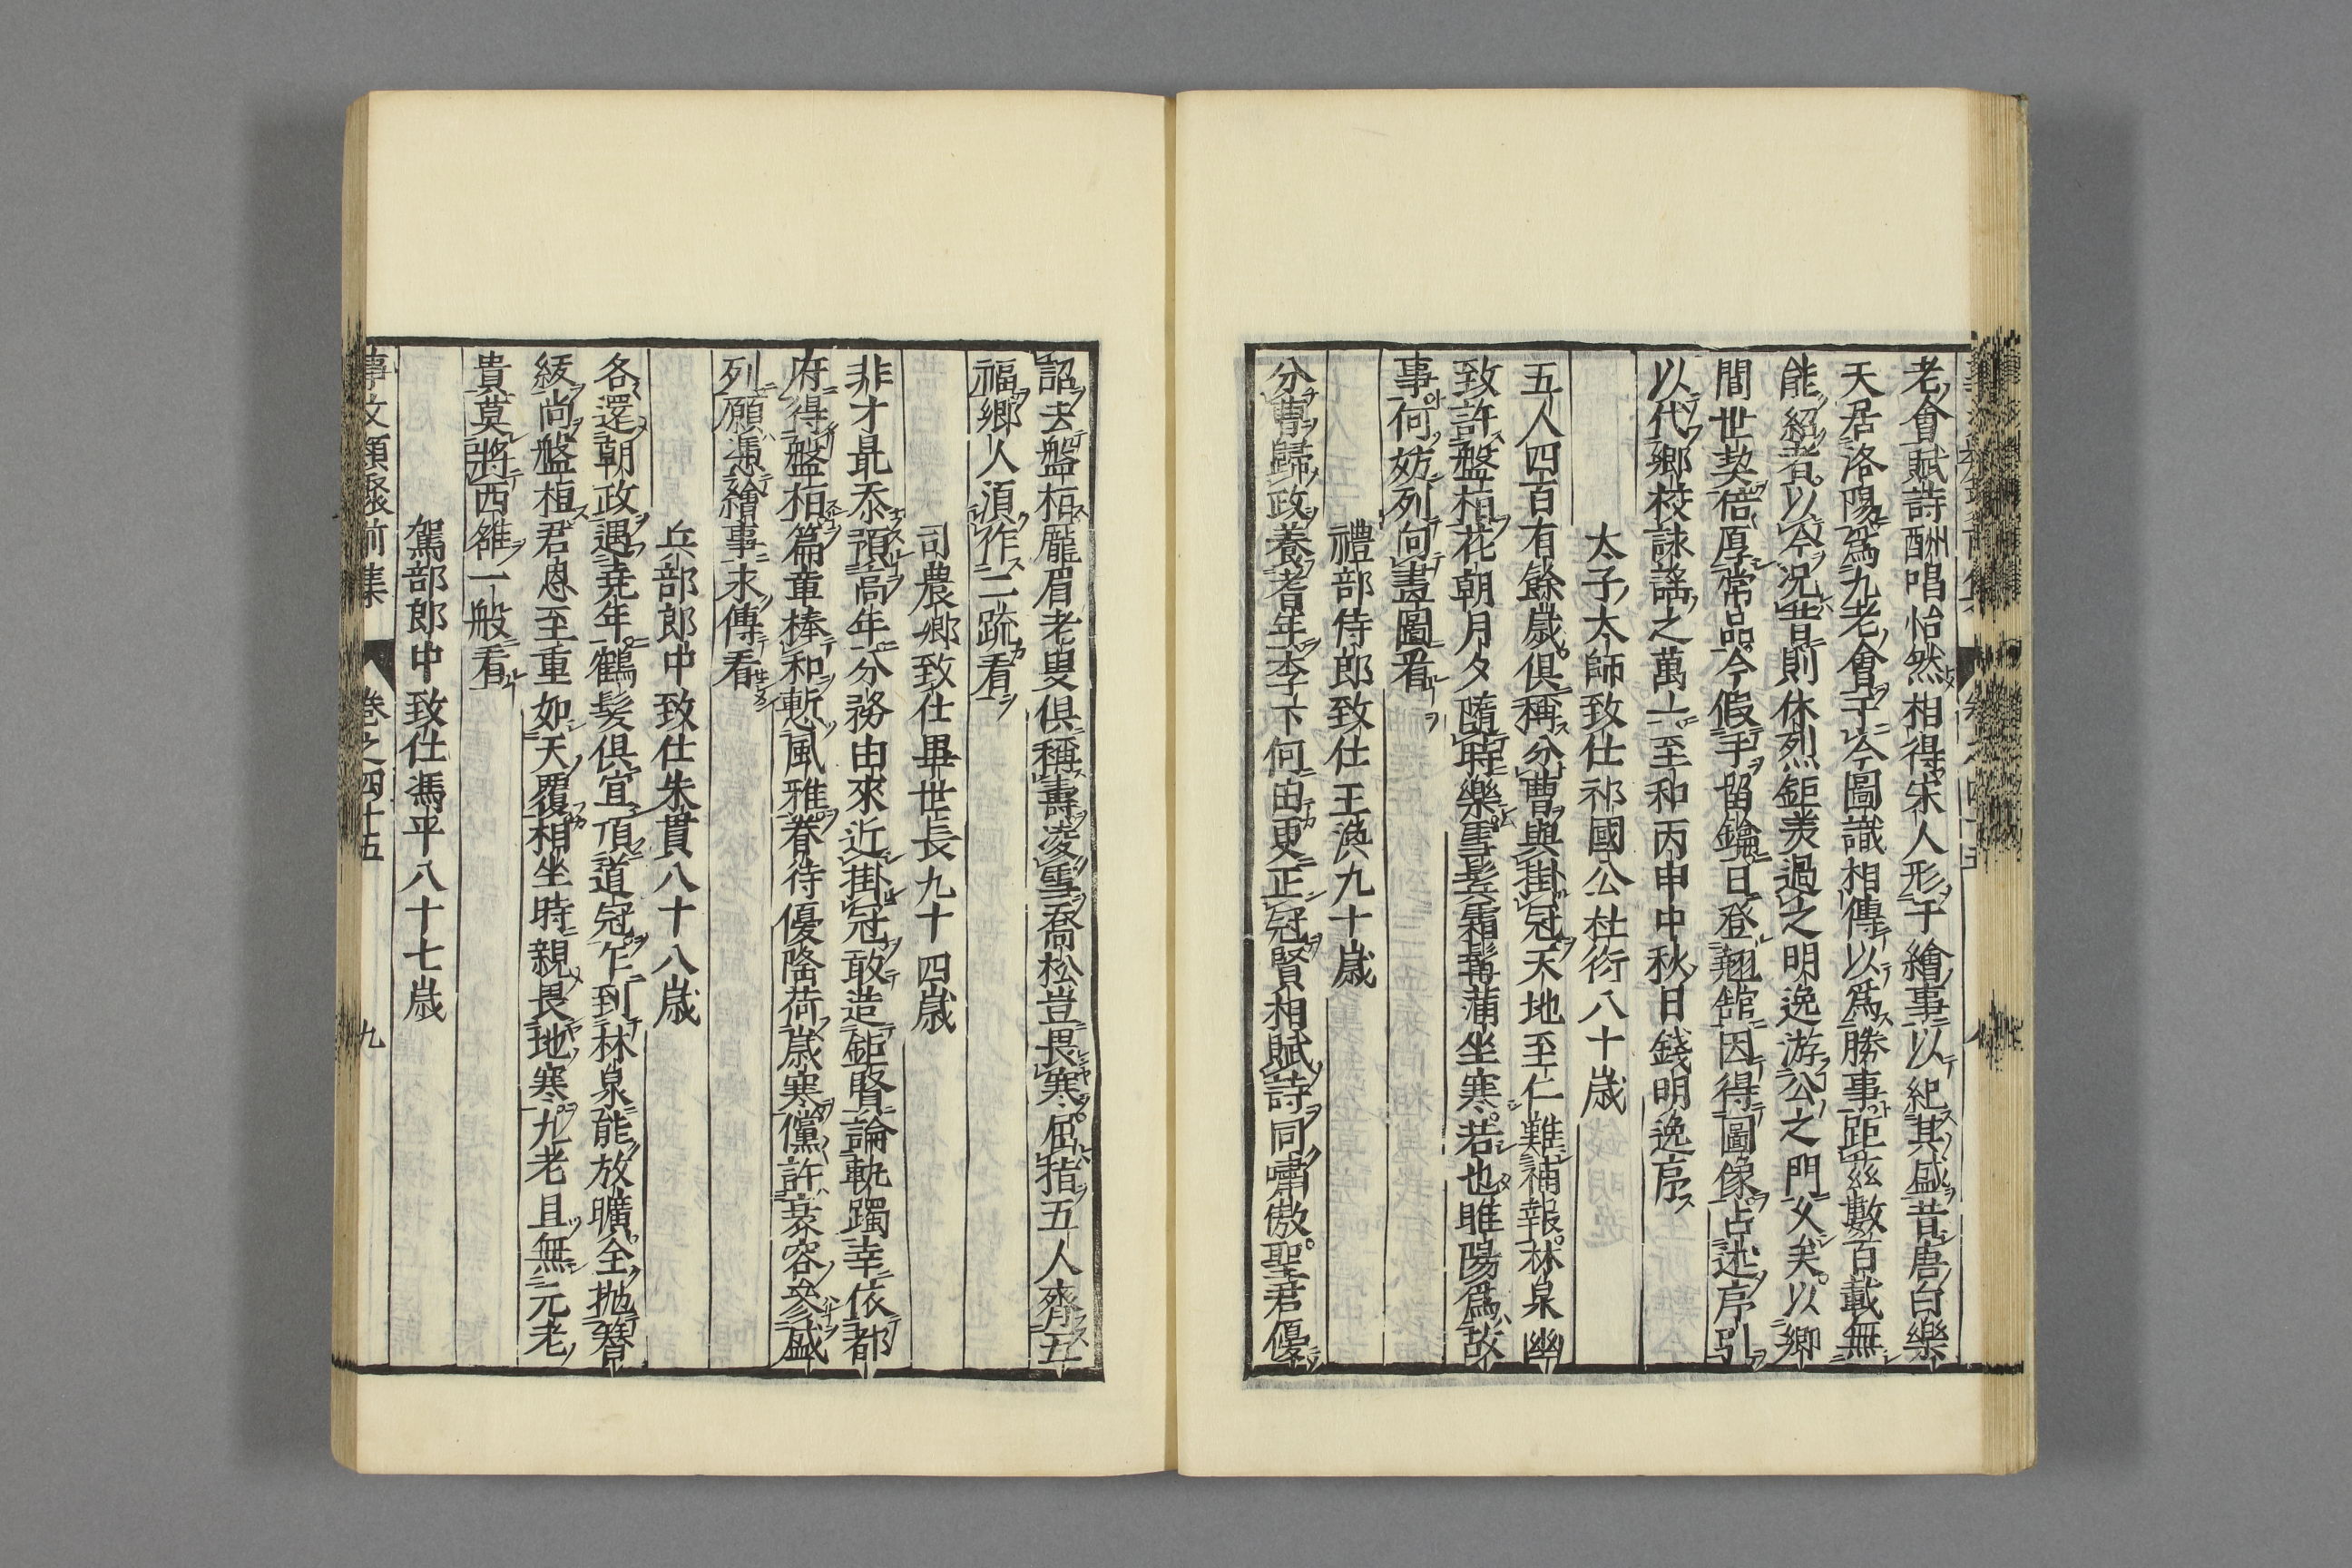 老會賦詩酬唱怡然相得宋人形于繪事以紀其盛昔唐白樂
天居洛陽爲九老會于今圖識相傳以爲勝事距茲數百載無
能紹者以今況昔則休烈鉅美過之明逸游公之門久矣以鄉
間世契倍厚常品今假手留鑰日登翹館因得圖像占述序引
以代鄉校詠謠之萬一至和丙申中秋日錢明逸序
太子太師致仕祁國公杜衍八十歲
五人四百有餘歲俱稱分曹與掛冠天地至仁難補報林泉幽
致許盤桓花朝月夕隨時樂雪鬂霜髯蒲坐寒若也睢陽爲故
事何妨列向畫圖看
禮部侍郎致仕王渙九十歲
分曹歸政養耆年李下何由更正冠賢相賦詩同嘯傲聖君優
詔去盤桓龐眉老叟俱稱壽凌雪喬松豈畏寒屈指五人齊五
福鄉人須作二疏看
司農卿致仕畢世長九十四歲
非才最忝預高年分務由來近掛冠敢造鉅賢論軌躅幸依都
府得盤桓篇章棒和慙風雅眷待優隆荷歲寒儻許衰容參盛
列願憑繪事永傳看
兵部郎中致仕朱貫八十八歲
各還朝政遇堯年鶴髮俱宜頂道冠乍到林泉能放曠全抛簪
紱尚盤桓君恩至重如天覆相坐時親畏地寒九老且無元老
貴莫將西雒一般看
駕部郎中致仕馮平八十七歲
事文類聚前集 卷之四十五 九